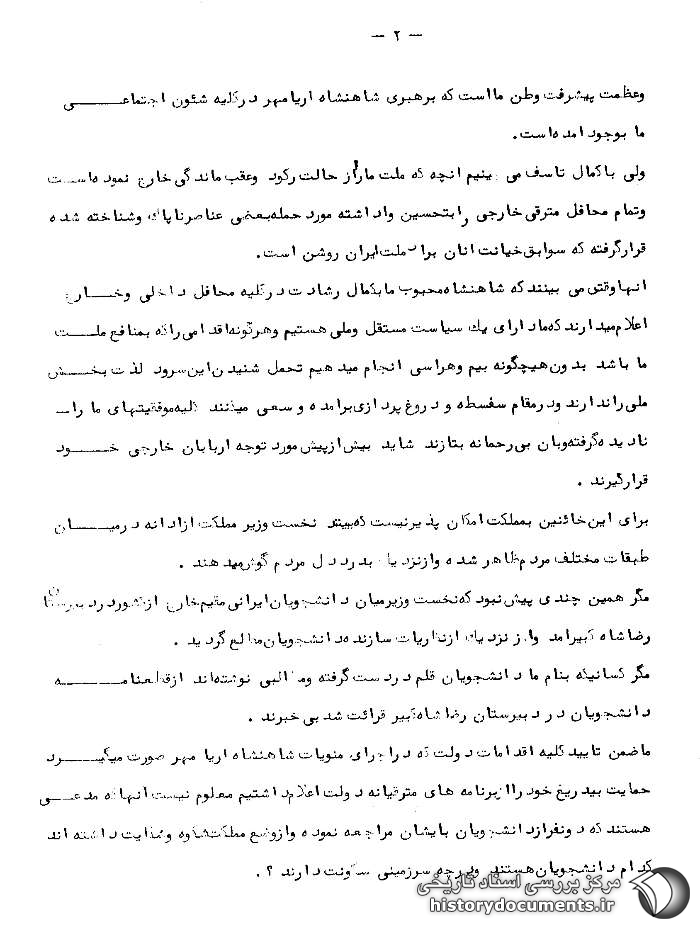 — ۲ —
وعظمت پیشرفت وطن مااست که برهبری شاهنشاه اریامهر درکلیه شئون اجتماعی
ما بوجود امده‌است.
ولی باکمال تاسف می بینیم انچه که ملت مارا از حالت رکود وعقب ماندگی خارج نموده‌است
وتمام محافل مترقی خارجی رابتحسین واداشته مورد حمله‌بعضی عناصرناپاک وشناخته شده
قرارگرفته که سوابق‌خیانت انان برای ملت‌ایران روشن است.
انهاوقتی می بینند که شاهنشاه‌محبوب مابکمال رشادت درکلیه محافل داخلی وخارج
اعلام‌میدارند که‌مادارای یک سیاست مستقل وملی هستیم وهرگونه‌اقدامی‌راکه بمنافع ملت
ما باشد بدون‌هیچگونه بیم وهراسی انجام میدهیم تحمل شنیدن‌این‌سرود لذت بخش
ملی‌راندارند ودرمقام سفسطه و دروغ پردازی‌برامده و سعی میکنند کلیه‌موفقیتهای ما را
نادیده‌گرفته‌وبان بی‌رحمانه بتازند شاید بیش‌ازپیش‌مورد توجه اربابان خارجی خود
قرارگیرند .
برای این‌خائنین بمملکت‌امکان پذیرنیست که‌ببینند نخست وزیر مملکت ازادانه درمیان
طبقات مختلف مردم‌ظاهر شده وازنزدیک بدرددل مردم گوش‌میدهند .
مگر همین چندی پیش‌نبود که‌نخست وزیرمیان دانشجویان‌ایرانی مقیم‌خارج ازکشوردردبیرستان
رضاشاه کبیرامد واز نزدیک ازنظریات سازنده‌دانشجویان‌مطلع گردید .
مگر کسانیکه بنام ما دانشجویان قلم دردست گرفته ومطالبی نوشته‌اند ازقطعنامه
دانشجویان در دبیرستان رضاشاه‌کبیر قرائت شد بی‌خبرند .
ماضمن تایید کلیه اقدامات دولت که دراجرای منویات شاهنشاه اریا مهر صورت میگیرد
حمایت بیدریغ خود راازبرنامه های مترقیانه دولت اعلام‌داشتیم معلوم نیست انهاکه مدعی
هستند که دونفرازدانشجویان بایشان مراجعه نموده وازوضع مملکت‌شکوه وشکایت داشته اند
کدام دانشجویان‌هستند ودرچه سرزمینی سکونت دارند ؟ .
مرکز بررسی اسناد تاریخی
historydocuments.ir